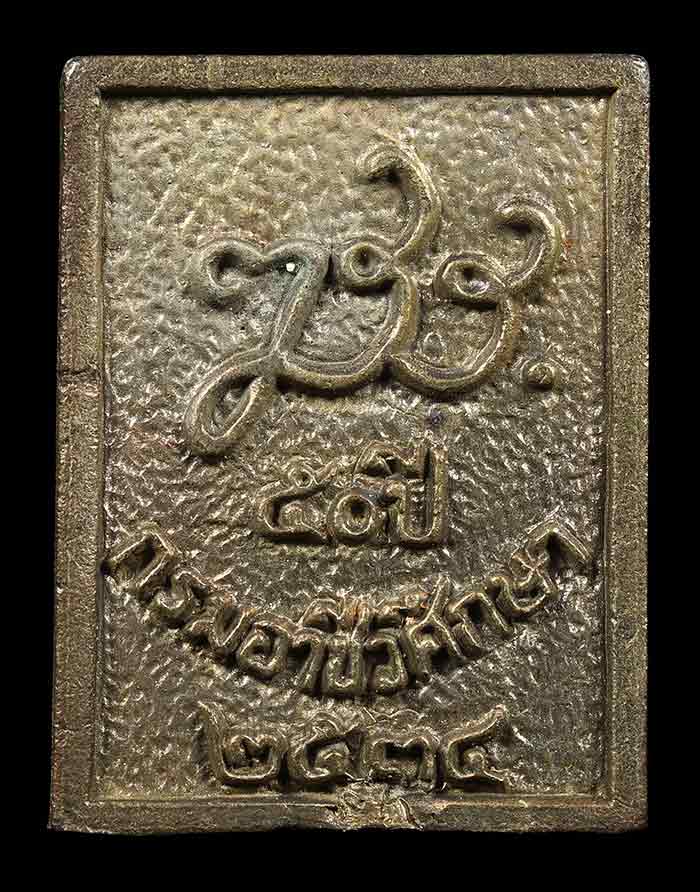 ๕๐ปี
กรมอาชีวศึกษา
๒๕๓๔